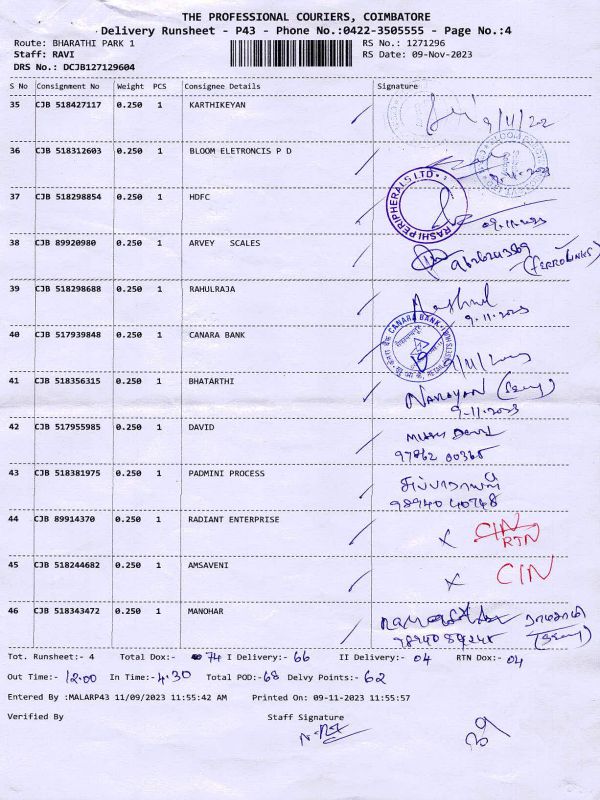 THE PROFESSIONAL COURIERS, COIMBATORE
Delivery Runsheet - P43 - Phone No.:0422-3505555 - Page No.:4
Route: BHARATHI PARK 1 RS No.: 1271296
Staff: RAVI RS Date: 09-Nov-2023
DRS No.: DCJB127129604
S No Consignment No Weight PCS Consignee Details Signature
35 CJB 518427117 0.250 1 KARTHIKEYAN
36 CJB 518312603 0.250 1 BLOOM ELETRONCIS P D
37 CJB 518298854 0.250 1 HDFC RASHI PERIPHERALS LTD. 09.11.2023
38 CJB 89920980 0.250 1 ARVEY SCALES
39 CJB 518298688 0.250 1 RAHULRAJA 9-11-2023
40 CJB 517939848 0.250 1 CANARA BANK CANARA BANK
41 CJB 518356315 0.250 1 BHATARTHI NARAYAN
9-11-2023
42 CJB 517955985 0.250 1 DAVID
97862 00365
43 CJB 518381975 0.250 1 PADMINI PROCESS
98940 40748
44 CJB 89914370 0.250 1 RADIANT ENTERPRISE X CIN
RTN
45 CJB 518244682 0.250 1 AMSAVENI X CIN
46 CJB 518343472 0.250 1 MANOHAR
Tot. Runsheet:- 4 Total Dox:- 74 I Delivery:- 66 II Delivery:- 04 RTN Dox:- 04
Out Time:- 12.00 In Time:- 4.30 Total POD:- 68 Delvy Points:- 62
Entered By :MALARP43 11/09/2023 11:55:42 AM Printed On: 09-11-2023 11:55:57
Verified By Staff Signature